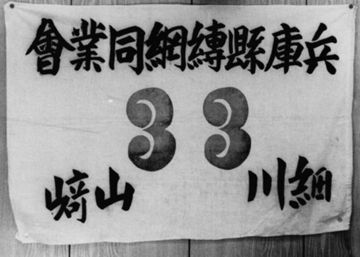 兵庫縣縛網同業會
33
細川 山﨑